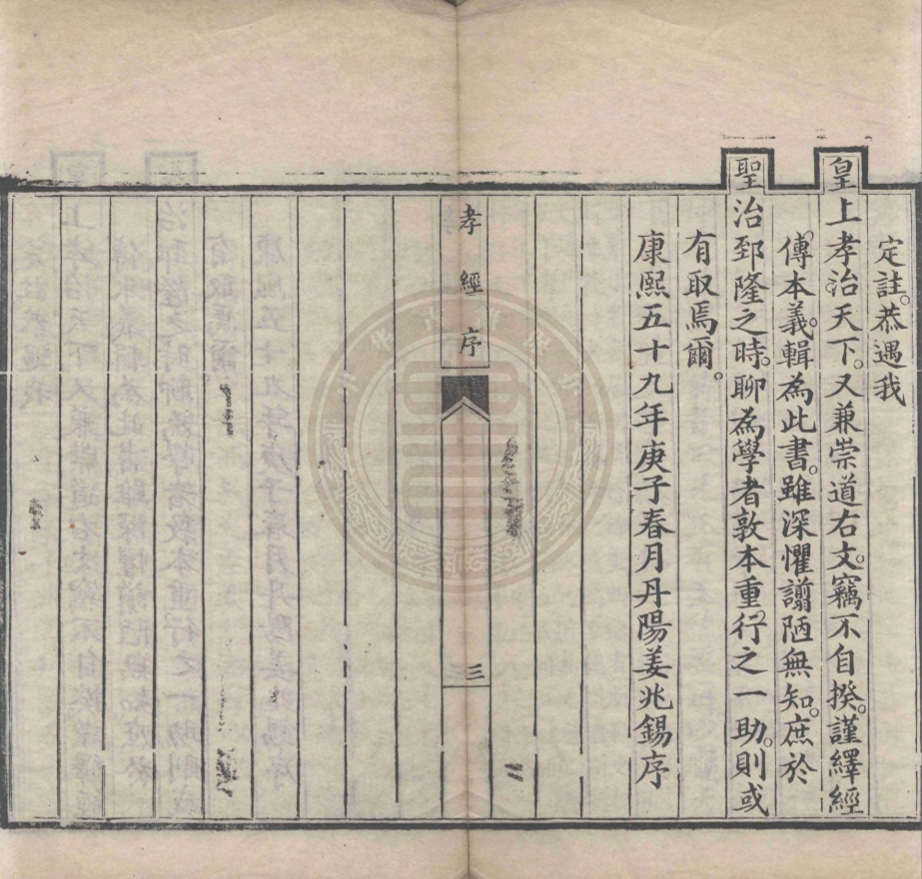 定註。恭遇我
皇上孝治天下。又兼崇道右文。竊不自揆。謹繹經
傳本義。輯為此書。雖深懼謭陋無知。庶於
聖治郅隆之時。聊為學者敦本重行之一助。則或
有取焉爾。
康熙五十九年庚子春月丹陽姜兆錫序
孝經序
三